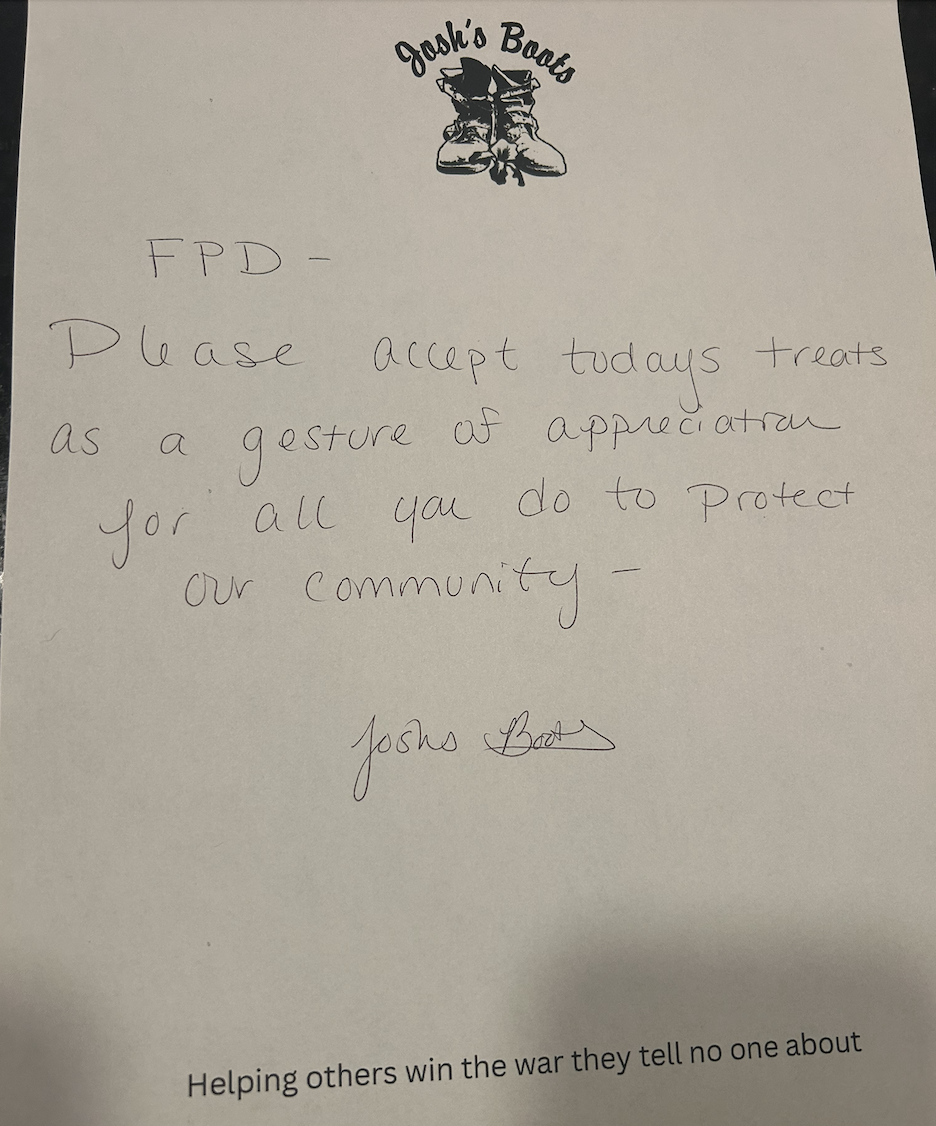 Josh's Boots
FPD -
Please accept todays treats
as a gesture of appreciation
for all you do to protect
our community -
Joshs Boots
Helping others win the war they tell no one about